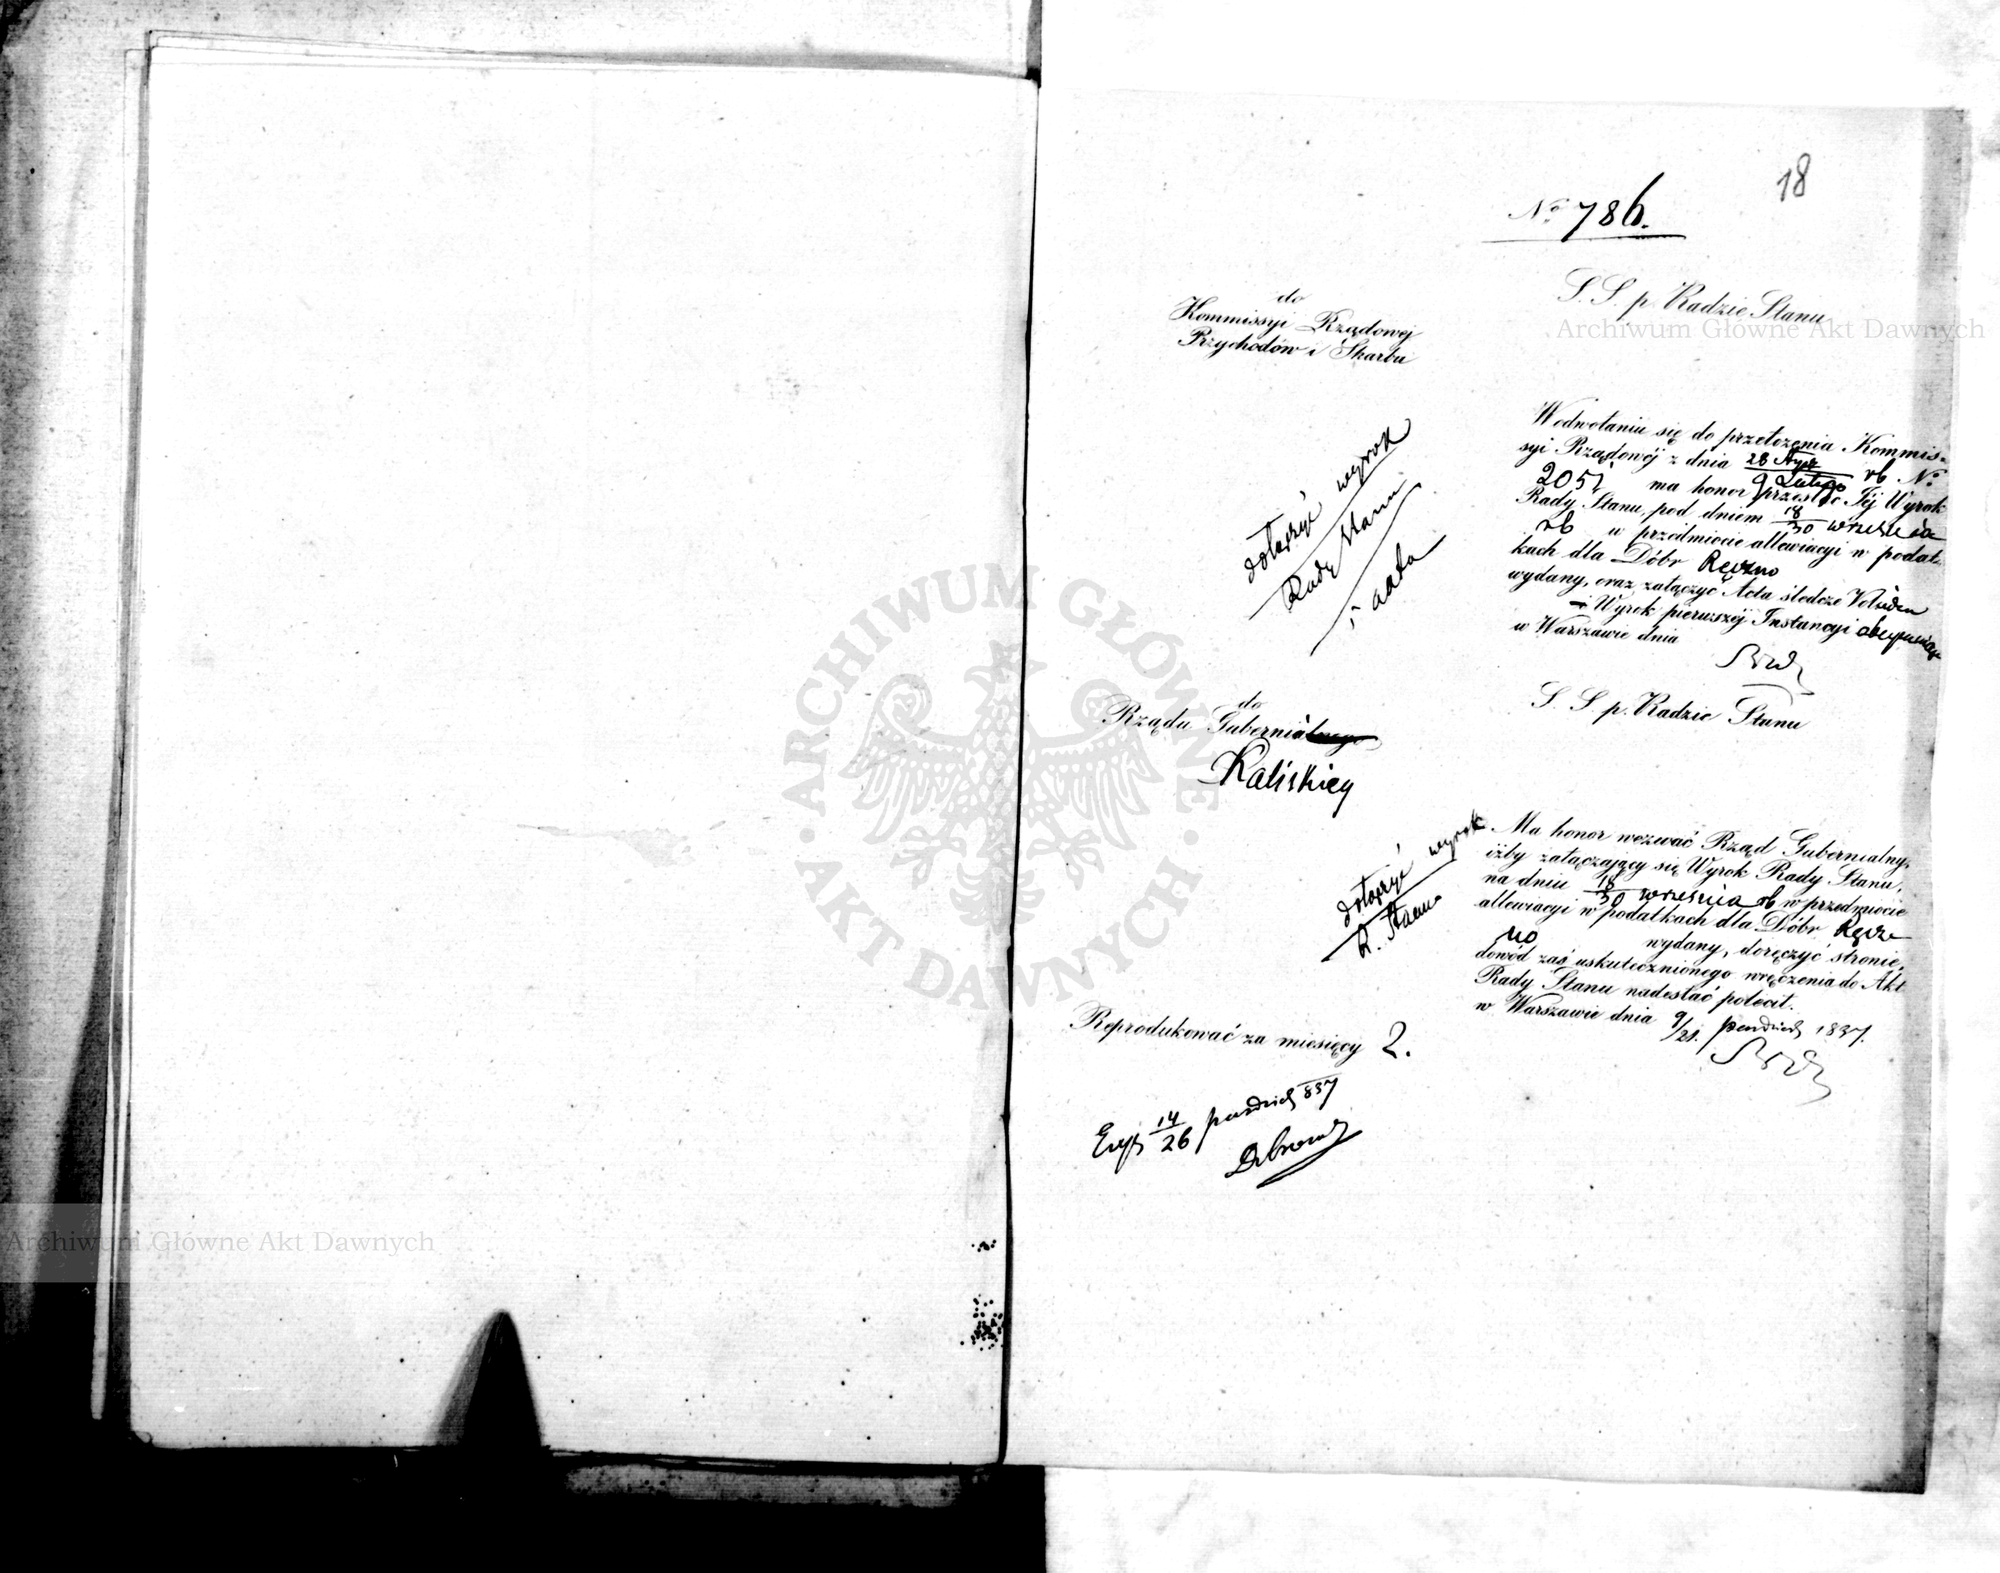 18
No 786.
do
Kommissyi Rządowej
Przychodów i Skarbu
S. S. p. Radzie Stanu
Wodwołaniu się do przełożenia Kommis-
syi Rządowéj z dnia 28 Stycz / 9 Lutego rb No
2051 ma honor przesłać Jéj Wyrok
Rady Stanu, pod dniem 18/30 września
rb w przedmiocie allewiacyi w podat-
kach dla Dóbr Ręczno
wydany, oraz załączyć Acta śledcze
i Wyrok pierwszéj Instancyi obejmujące
w Warszawie dnia
dołączyć wyrok
Rady Stanu
i akta
do
Rządu Gubernialnego
Kaliskiey
S. S. p. Radzie Stanu
Ma honor wezwać Rząd Gubernialny,
iżby załączający się Wyrok Rady Stanu,
na dniu 18/30 września rb w przedmiocie
allewiacyi w podatkach dla Dóbr Ręcz
no wydany, doręczyć stronie,
dowód zaś uskutecznionego wręczenia do Akt
Rady Stanu nadesłać polecił.
w Warszawie dnia 9/21. paździer 1837.
dołączyć wyrok
R. Stanu
Reprodukować za miesięcy 2.
Exp 14/26 paździer 837
Archiwum Główne Akt Dawnych
Archiwum Główne Akt Dawnych
ARCHIWUM GŁÓWNE · AKT DAWNYCH ·